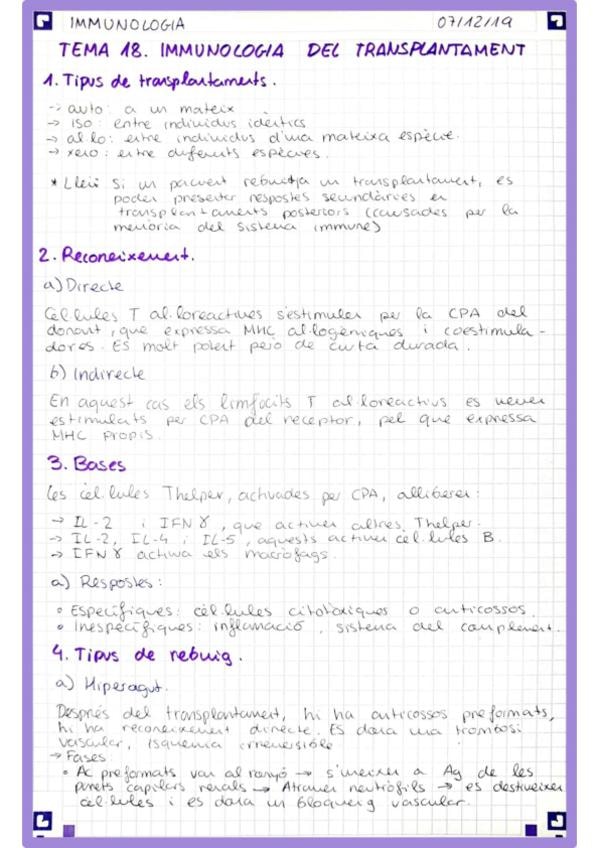 IMMUNOLOGIA 07/12/19
TEMA 18. IMMUNOLOGIA DEL TRANSPLANTAMENT
1. Tipus de transplantaments.
-> auto: a un mateix
-> iso: entre individus idèntics
-> al·lo: entre individus d'una mateixa espècie.
-> xeno: entre diferents espècies.
* Llei: Si un pacient rebutja un transplantament, es
poden presentar respostes secundàries en
transplantaments posteriors (causades per la
memòria del sistema immune)
2. Reconeixement.
a) Directe
Cèl·lules T al·loreactives s'estimulen per la CPA del
donant, que expressa MHC al·logèniques i coestimula-
dores. És molt potent però de curta durada.
b) Indirecte
En aquest cas els limfòcits T al·loreactius es veuen
estimulats per CPA del receptor, pel que expressa
MHC propis.
3. Bases
Les cèl·lules Thelper, activades per CPA, alliberen:
-> IL-2 i IFNγ, que activen altres Thelper.
-> IL-2, IL-4 i IL-5, aquests activen cèl·lules B.
-> IFNγ activa els macròfags.
a) Respostes:
• Específiques: cèl·lules citotòxiques o anticossos.
• Inespecífiques: inflamació, sistema del complement.
4. Tipus de rebuig.
a) Hiperagut.
Després del transplantament, hi ha anticossos preformats,
hi ha reconeixement directe. Es dona una trombosi
vascular, isquèmia irreversible
-> Fases
• Ac preformats van al ronyó -> s'uneixen a Ag de les
parets capilars renals -> Atrauen neutròfils -> es destrueixen
cèl·lules i es dona un bloqueig vascular.